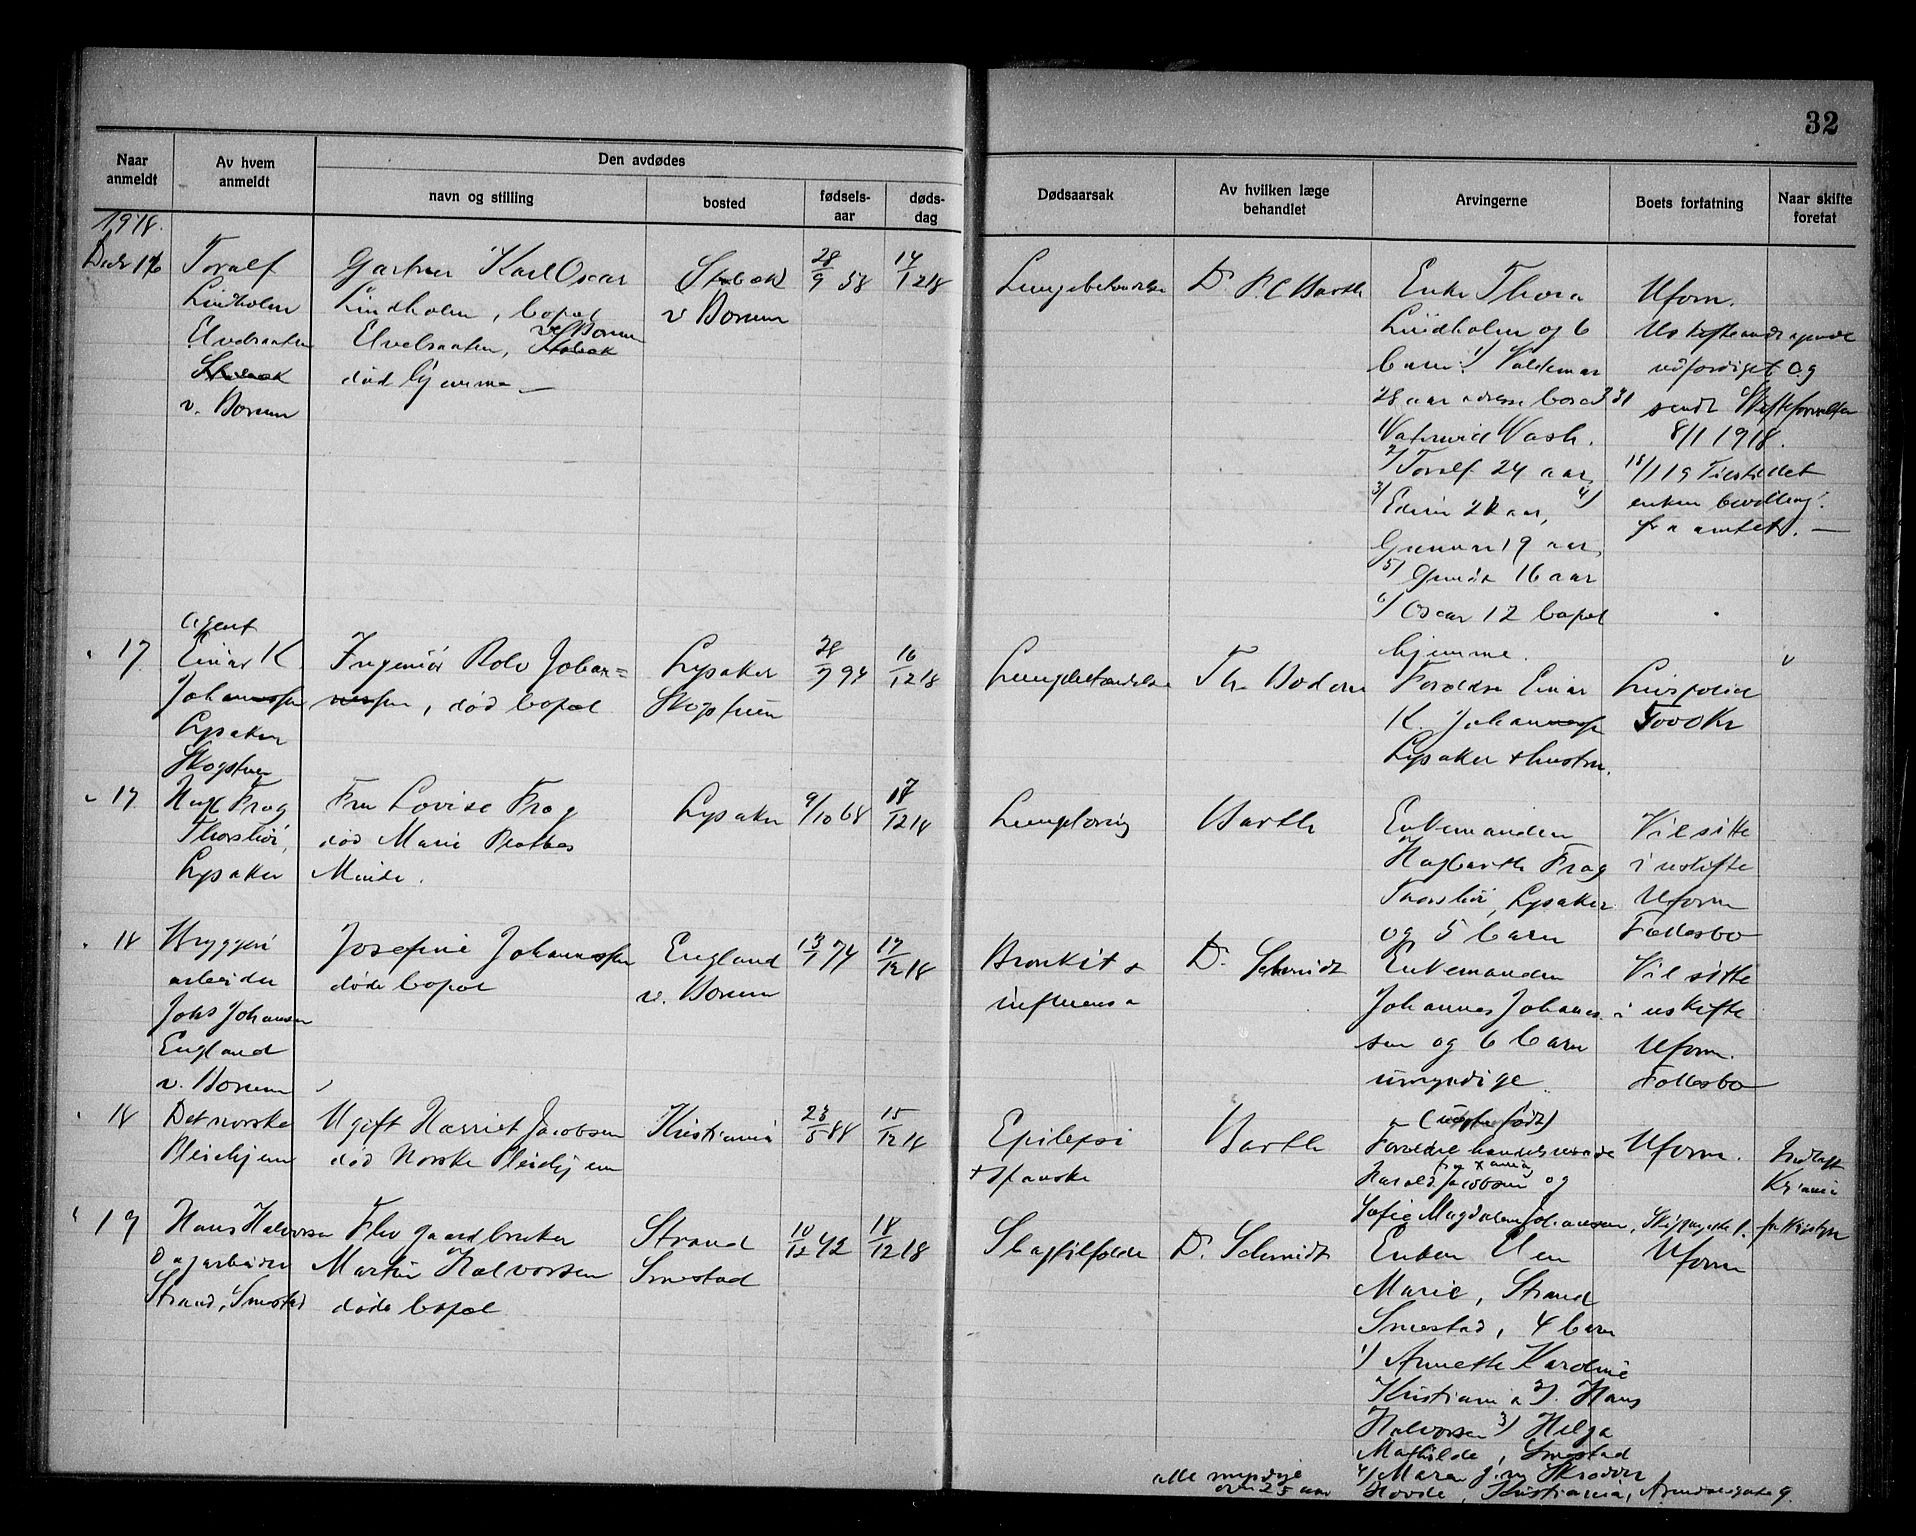 32
Naar anmeldt
Av hvem anmeldt
Den avdødes
navn og stilling
bosted
fødsels-aar
døds-dag
Dødsaarsak
Av hvilken læge behandlet
Arvingerne
Boets forfatning
Naar skifte foretat
1918.
Decbr 16
Toralf
Lindholm
v. Borum
Gartner Karl Oscar
Lindholm, bopæl
v. Borum
død hjemme
Stabæk
v Borum
28/9 58
14/12 18
Lungebetændelse
D. P. C Barth
Enke Thora
Lindholm og 6
barn: 1) Valdemar
28 aar adresse box 331
Wash.
2) Toralf 24 aar,
3) 21 aar, 4)
Gunnar 19 aar,
5) 16 aar
6) Oscar 12 bopæl
hjemme.
Uform.
Uskifteandragende
udfærdiget og
sendt Skifteforvalter
8/1 1918.
18/1 19 Tilstillet
enken bevilling
fra amtet. —
" 17
Agent
Einar K
Johannessen
Lysaker
Ingeniør Rolv Johan=
nessen, død bopæl
Lysaker
28/9 94
16/12 18
Lungebetændelse
Th. Bodom
Forældre Einar
K. Johannessen
Lysaker + hustru.
Livspolice
5000 Kr
" 17
Frog
Lysaker
Fru Lovise Frog
død Marie Plathes
Minde.
Lysaker
9/10 68
17/12 18
Barth
Enkemanden
Hagbarth Frog
Lysaker
og 5 barn
Vil sitte
i uskifte
Uform
Fællesbo
" 18
Bryggeri
arbeider
Johs Johansen
England
v. Borum
Josefine Johannessen
døde bopæl
England
v. Borum
13/1 74
17/12 18
Bronkit &
influensa
D. Schmidt
Enkemanden
Johannes Johannes-
sen og 6 barn
umyndige
Vil sitte
i uskifte
Uform.
Fællesbo
" 18
Det norske
Pleiehjem
Ugift Harriet Jacobsen
død Norske Pleiehjem
Kristiania
23/5 88
15/12 18
Epilepsi
+ spanske
Barth
Forældre
Harald Jacobsen og
Sofie Magdalene Johansen,
Uform.
" 19
Hans Halvorsen
Dagarbeider
Strand, Smestad
Fhv gaardbruker
Martin Halvorsen
døde bopæl
Strand
Smestad
10/12 42
18/12 18
Slagtilfælde
D. Schmidt
Enken
Marie, Strand
Smestad, 4 barn
1) Annette Karoline
Kristiania 2) Hans
Halvorsen 3) Helga
Mathilde, Smestad
4) Maren
Kristiania,
Uform
alle myndige
over 25 aar